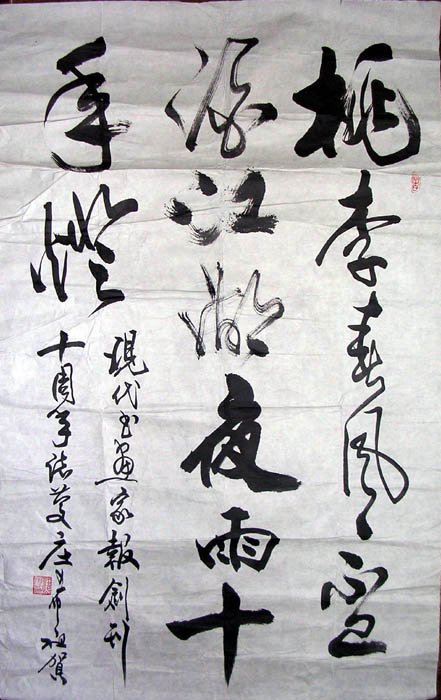 桃李春风一盃
酒江湖夜雨十
年燈
現代书画家報創刊
十周年誌慶庄希祖賀